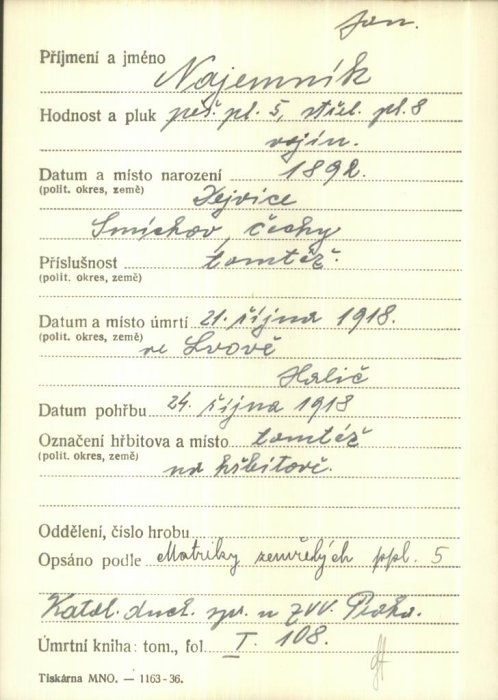 Jan.
Příjmení a jméno
Najemník
Hodnost a pluk pěš. pl. 5, střel. pl. 8
vojín.
Datum a místo narození 1892.
(polit. okres, země) Dejvice
Smíchov, Čechy
Příslušnost tomtéž.
(polit. okres, země)
Datum a místo úmrtí 21. října 1918.
(polit. okres, země) ve Lvově
Halič
Datum pohřbu 24. října 1918
Označení hřbitova a místo tomtéž
(polit. okres, země) na hřbitově.
Oddělení, číslo hrobu
Opsáno podle Matriky zemřelých ppl. 5
Katol. duch. spr. u ZVV. Praha.
Úmrtní kniha: tom., fol. I. 108.
Tiskárna MNO. — 1163-36.